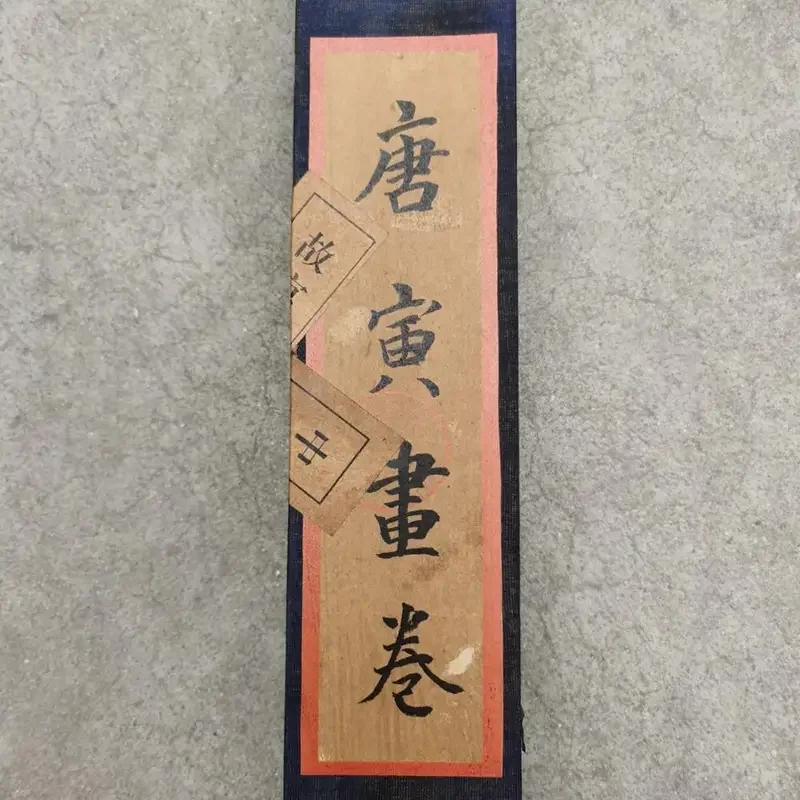 唐寅畫卷
故